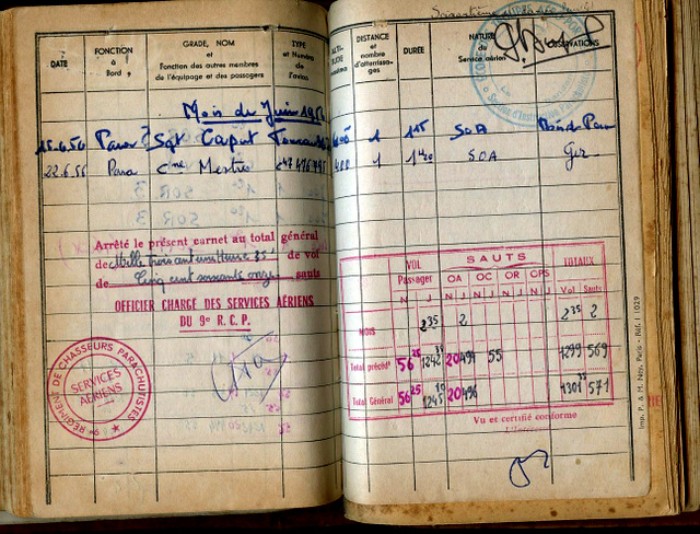 DATE
FONCTION à Bord
GRADE, NOM et Fonction des autres membres de l'équipage et des passagers
TYPE et Numéro de l'avion
DISTANCE et nombre d'atterrissages
DURÉE
NATURE du Service aérien
OBSERVATIONS
Mois de Juin 1956
15.6.56 Para Sgt Caput 600 1 1 15 SOA
22.6.56 Para Cne Mestre 400 1 1 20 SOA
Arrêté le présent carnet au total général
de Mille trois cent une Heure 35' de vol
de Cinq cent soixante onze sauts
OFFICIER CHARGÉ DES SERVICES AÉRIENS
DU 9e R.C.P.
9e RÉGIMENT DE CHASSEURS PARACHUTISTES
SERVICES AÉRIENS
VOL Passager SAUTS TOTAUX
N J OA OC OR OPS Vol Sauts
N J N J N J N J
MOIS 2 35 2 2 35 2
Total précédt 56 25 1242 20 494 55 1299 569
Total Général 56 25 1245 10 20 496 1301 35 571
Vu et certifié conforme
Imp. P. & M. Ney, Paris - Réf. I 1029